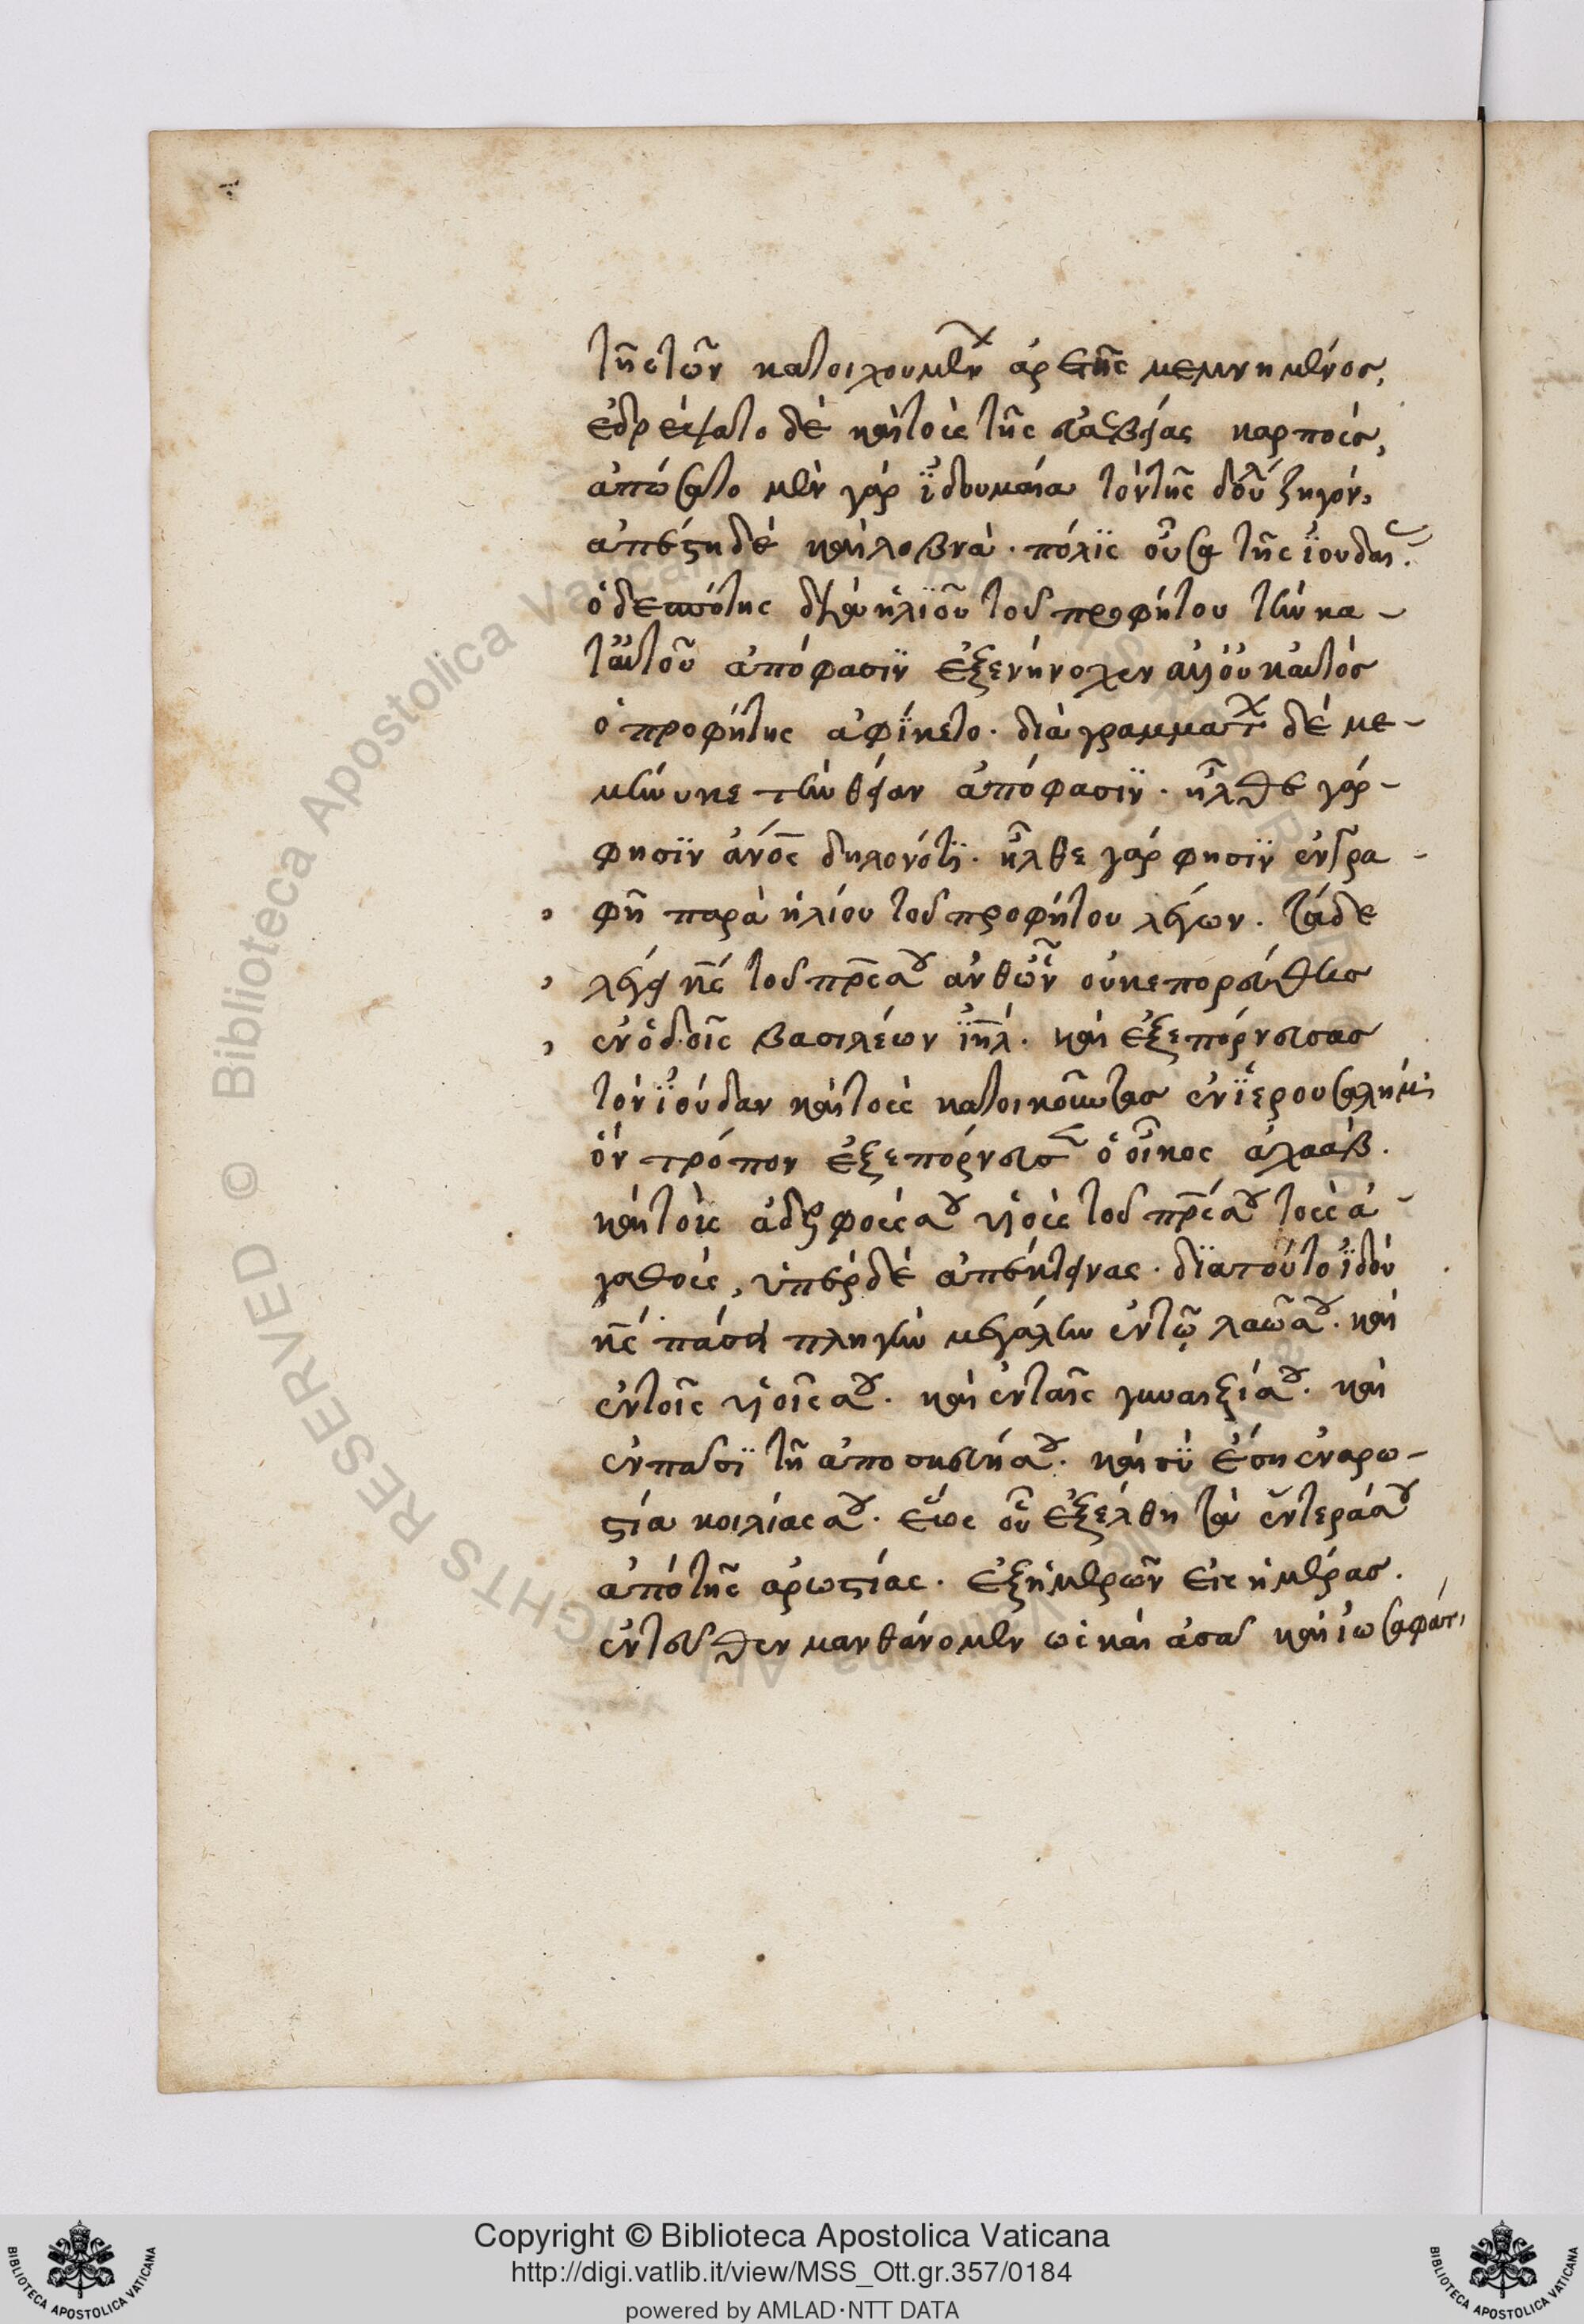 τῆς τῶν κατοιχομέν ἀρετῆς μεμνημένος,
ἐδρέψατο δὲ καὶ τοὺς τῆς ἀσεβείας καρπούς,
ἀπώσατο μὲν γὰρ ἰδουμαία τὸν τῆς δουλ ζυγόν,
ἀπέστη δὲ καὶ λοβνὰ· πόλις οὖσα τῆς ἰουδαί.
ὁ δεσπότης διὰ ἠλιοῦ τοῦ προφήτου τὴν κα-
τ' αὐτοῦ ἀπόφασιν ἐξενήνοχεν αὐτὸς
ὁ προφήτης ἀφίκετο· διὰ γραμμάτ δὲ με-
μήνυκε τὴν θείαν ἀπόφασιν· ἦλθε γὰρ-
φησὶν ἀνος δηλονότι· ἦλθε γὰρ φησὶν ἐν γρα-
φῆ παρὰ ἠλίου τοῦ προφήτου λέγων· τάδε
λέγει κς τοῦ πρς σου ἀνθ' ὧν οὐκ ἐπορεύθης
ἐν ὁδοῖς βασιλέων ιηλ· καὶ ἐξεπόρνευσας
τὸν ἰούδαν καὶ τοὺς κατοικοῦντας ἐν ἱερουσαλήμ,
ὃν τρόπον ἐξεπόρνευσ ὁ οἶκος ἀχαάβ.
καὶ τοὺς ἀδελφούς σου υἱοὺς τοῦ πρς σου τοὺς ἀ-
γαθούς, ὑπὲρ δὲ ἀπέκτεινας· διὰ τοῦτο ἰδοὺ
κς πατάσσει πληγὴν μεγάλην ἐν τῷ λαῷ σου· καὶ
ἐν τοῖς υἱοῖς σου· καὶ ἐν ταῖς γυναιξί σου· καὶ
ἐν πάσῃ τῆ ἀποσκευῆ σου· καὶ σὺ ἔση ἐν ἀρω-
στία κοιλίας σου· ἕως οὗ ἐξέλθη τὰ ἔντερά σου
ἀπὸ τῆς ἀρωστίας· ἐξ ἡμερῶν εἰς ἡμέρας.
ἐντεῦθεν μανθάνομεν ὡς καὶ ἀσὰ καὶ ἰωσαφάτ,
Copyright © Biblioteca Apostolica Vaticana
http://digi.vatlib.it/view/MSS_Ott.gr.357/0184
powered by AMLAD·NTT DATA